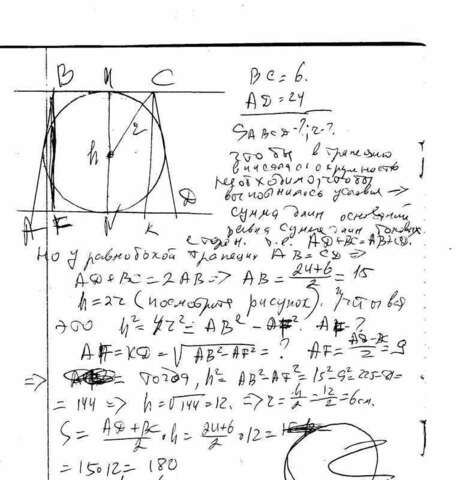 B N C
BC = 6.
AD = 24
S ABCD - ?; r - ?.
r
h
D
A F N K
чтобы в трапецию
вписать окружность
необходимо, чтобы
выполнилось условия ⇒
сумма длин оснований
равна сумма длин боковых
сторон. т.е. AD+BC=AB+CD.
Но у равнобокой трапеции AB = CD ⇒
AD+BC = 2AB ⇒ AB = (24+6)/2 = 15
h = 2r (посмотрите рисунок). Учитывая
это h² = 4r² = AB² - AF². AF - ?
AF = KD = √(AB²-AF²) = ? AF = (AD-BC)/2 = 9
⇒ тогда, h² = AB²-AF² = 15²-9² = 225-81=
= 144 ⇒ h = √144 = 12. ⇒ r = h/2 = 12/2 = 6 см.
S = (AD+BC)/2 · h = (24+6)/2 · 12 =
= 15·12 = 180